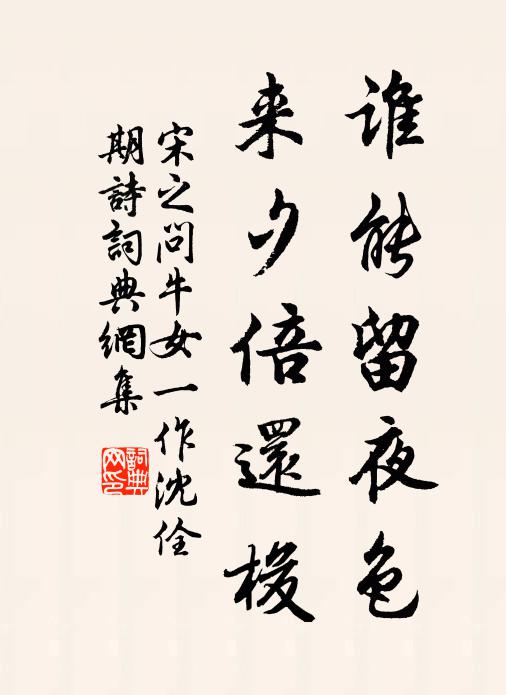 谁能留夜色
来夕倍還梭
宋之问牛女一作沈佺
期詩詞典網集
詞典网印